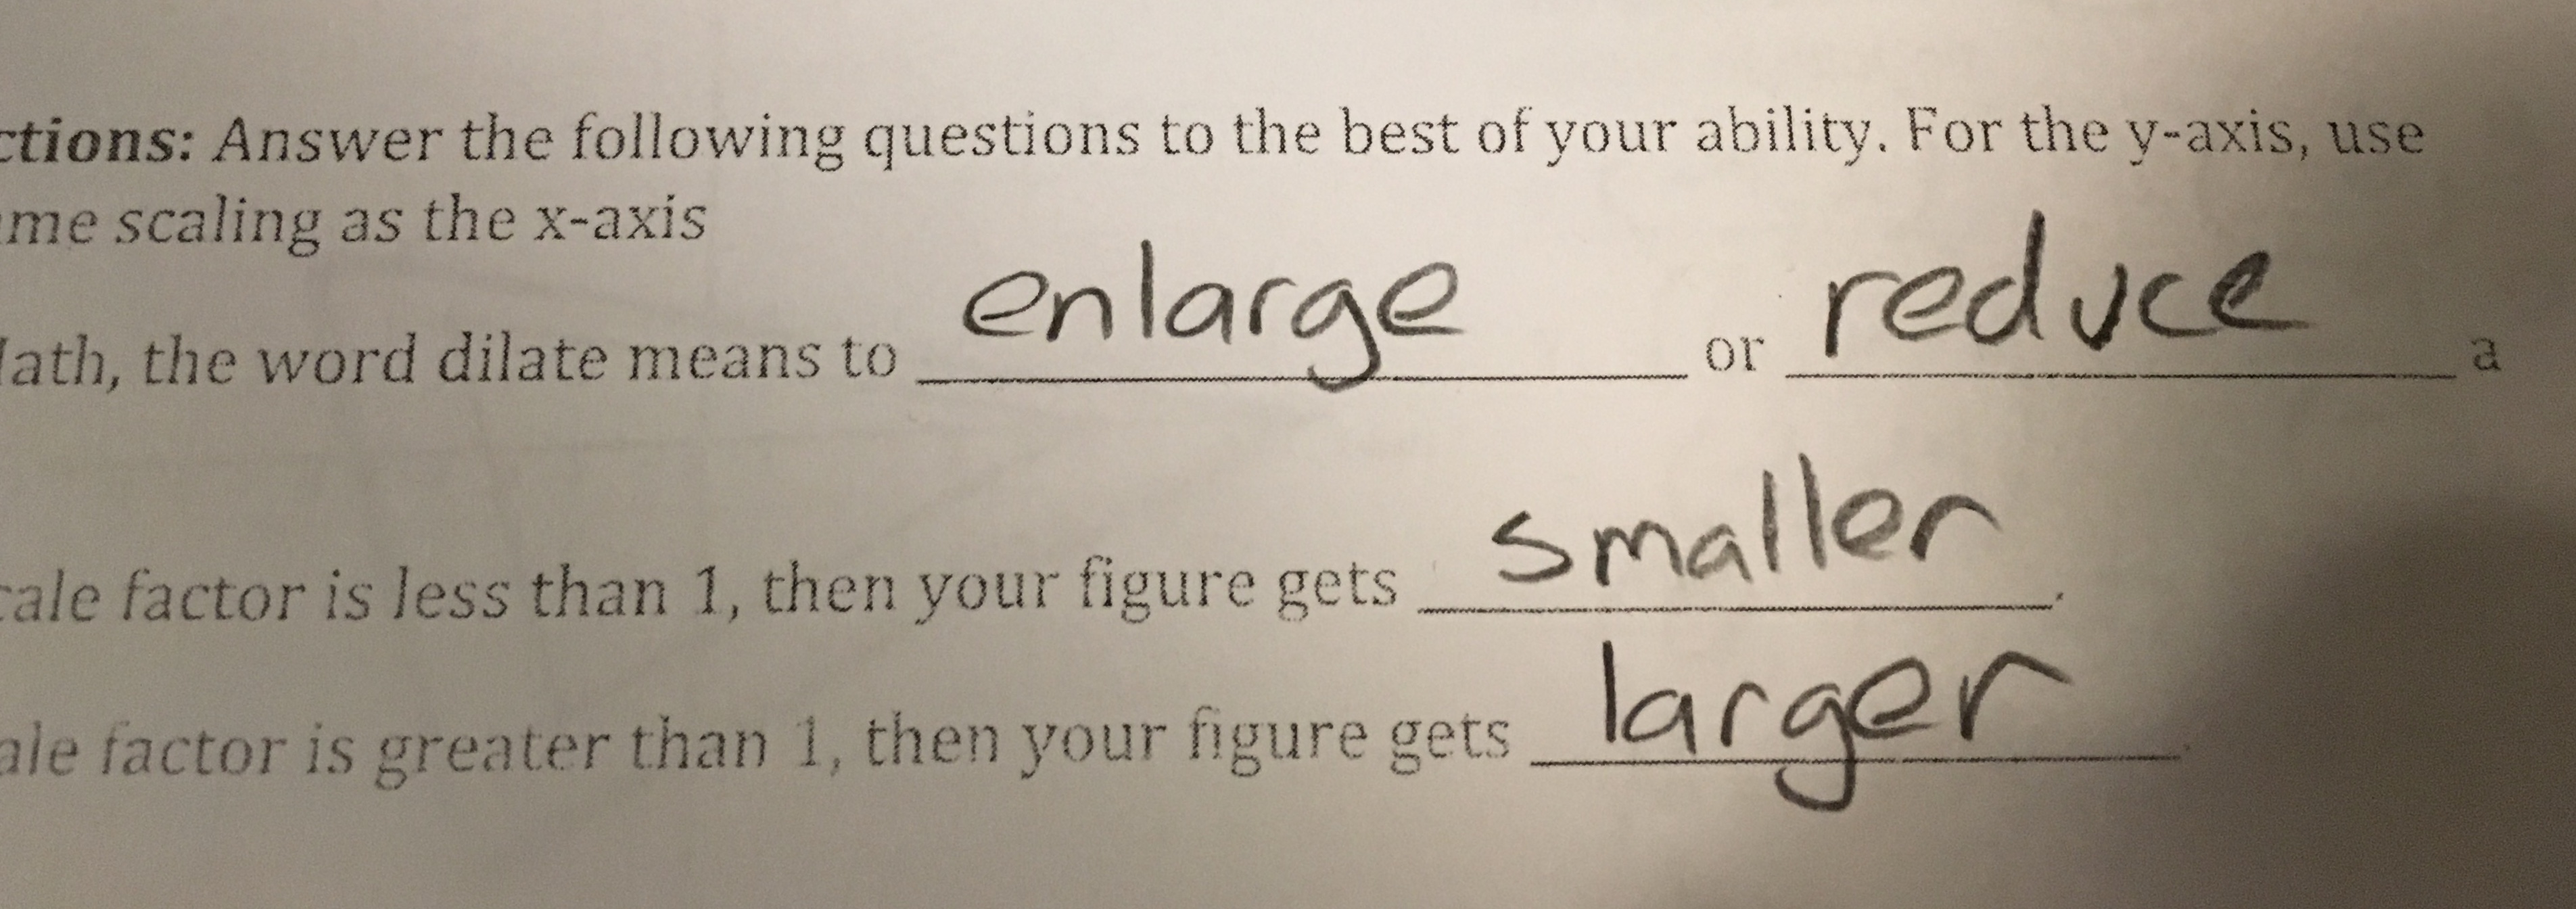 ctions: Answer the following questions to the best of your ability. For the y-axis, use
me scaling as the x-axis
ath, the word dilate means to enlarge or reduce a
cale factor is less than 1, then your figure gets smaller.
ale factor is greater than 1, then your figure gets larger.